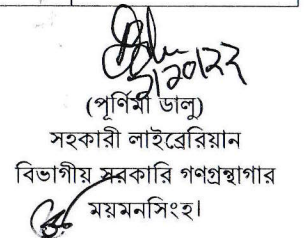 (পূর্ণিমা ডালু)
সহকারী লাইব্রেরিয়ান
বিভাগীয় সরকারি গণগ্রন্থাগার
ময়মনসিংহ।